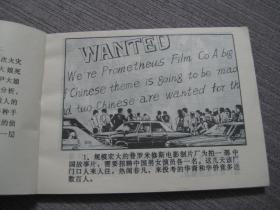 次火灾
大娘死
尹大娘
分析，
敌人的
种手
各的值
一层
WANTED
We're Prometheus Film Co A big
Chinese theme is going to be mad
d two Chinese are wanted for th
1、规模宏大的普罗米修斯电影制片厂为拍一部中
国故事片，需要招聘中国男女演员各一名，这几天该厂
门口人来人往，热闹非凡，来投考的华裔和华侨竟多达
数百人。